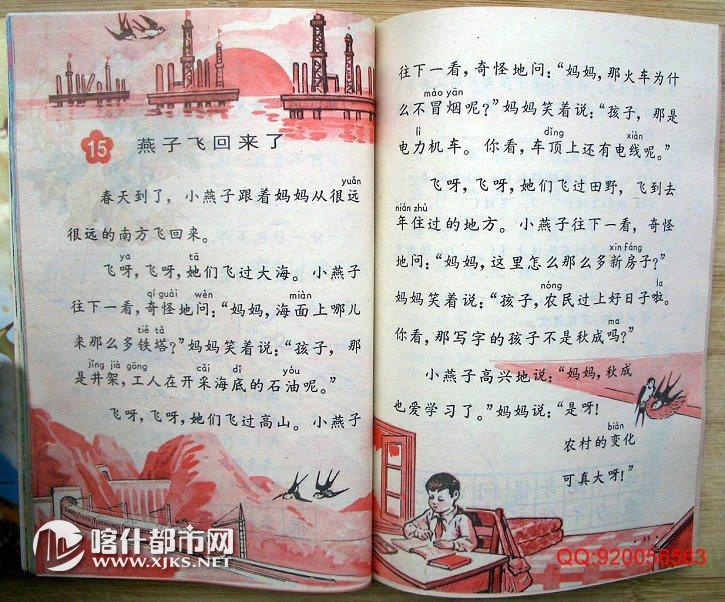 15 燕子飞回来了
yuǎn
春天到了，小燕子跟着妈妈从很远
很远的南方飞回来。
ya tā
飞呀，飞呀，她们飞过大海。小燕子
qí guài wèn miàn
往下一看，奇怪地问：“妈妈，海面上哪儿
tiě tǎ
来那么多铁塔？”妈妈笑着说：“孩子，那
jǐng jià gōng cǎi dǐ yóu
是井架，工人在开采海底的石油呢。”
飞呀，飞呀，她们飞过高山。小燕子
往下一看，奇怪地问：“妈妈，那火车为什
mào yān
么不冒烟呢？”妈妈笑着说：“孩子，那是
lì dǐng xiàn
电力机车。你看，车顶上还有电线呢。”
飞呀，飞呀，她们飞过田野，飞到去
nián zhù
年住过的地方。小燕子往下一看，奇怪
xīn fáng
地问：“妈妈，这里怎么那么多新房子？”
nóng la
妈妈笑着说：“孩子，农民过上好日子啦。
ma
你看，那写字的孩子不是秋成吗？”
小燕子高兴地说：“妈妈，秋成
也爱学习了。”妈妈说：“是呀！
biàn
农村的变化
可真大呀！”
喀什都市网
www.XJKS.NET
QQ:920056563